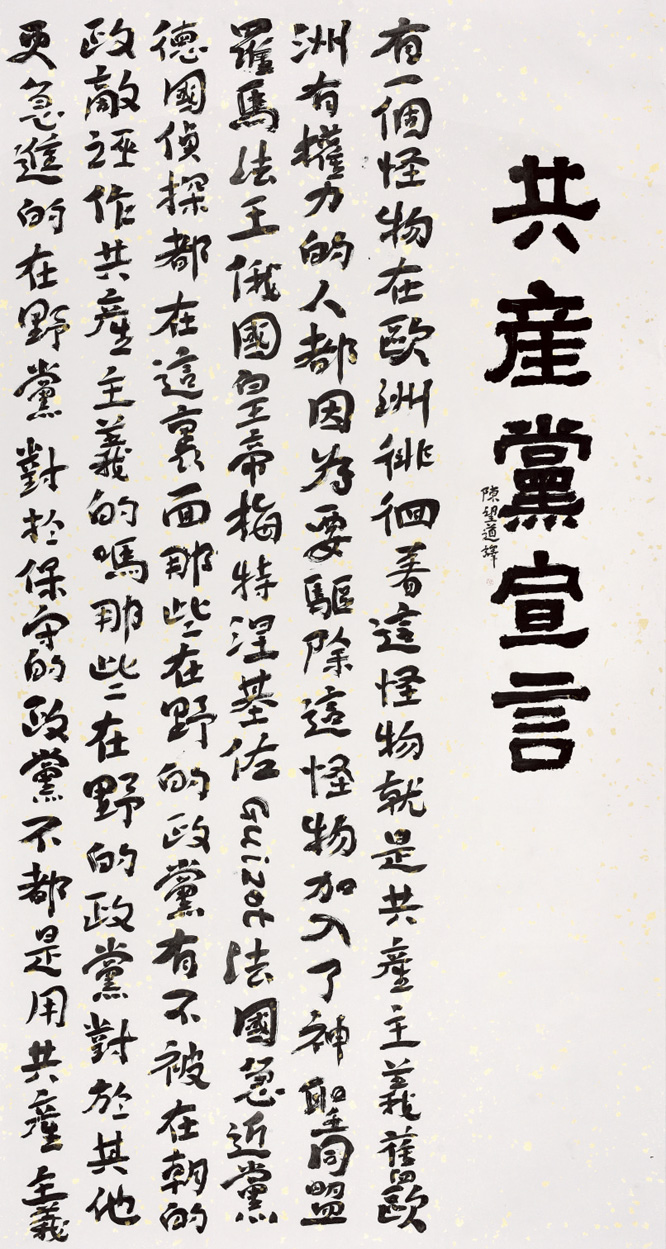 共産黨宣言
陳望道譯
有一個怪物在歐洲徘徊著這怪物就是共産主義舊歐
洲有權力的人都因為要驅除這怪物加入了神聖同盟
羅馬法王俄國皇帝梅特涅基佐Guizot法國急近黨
德國偵探都在這裏面那些在野的政黨有不被在朝的
政敵誣作共産主義的嗎那些在野的政黨對於其他
更急進的在野黨對於保守的政黨不都是用共産主義